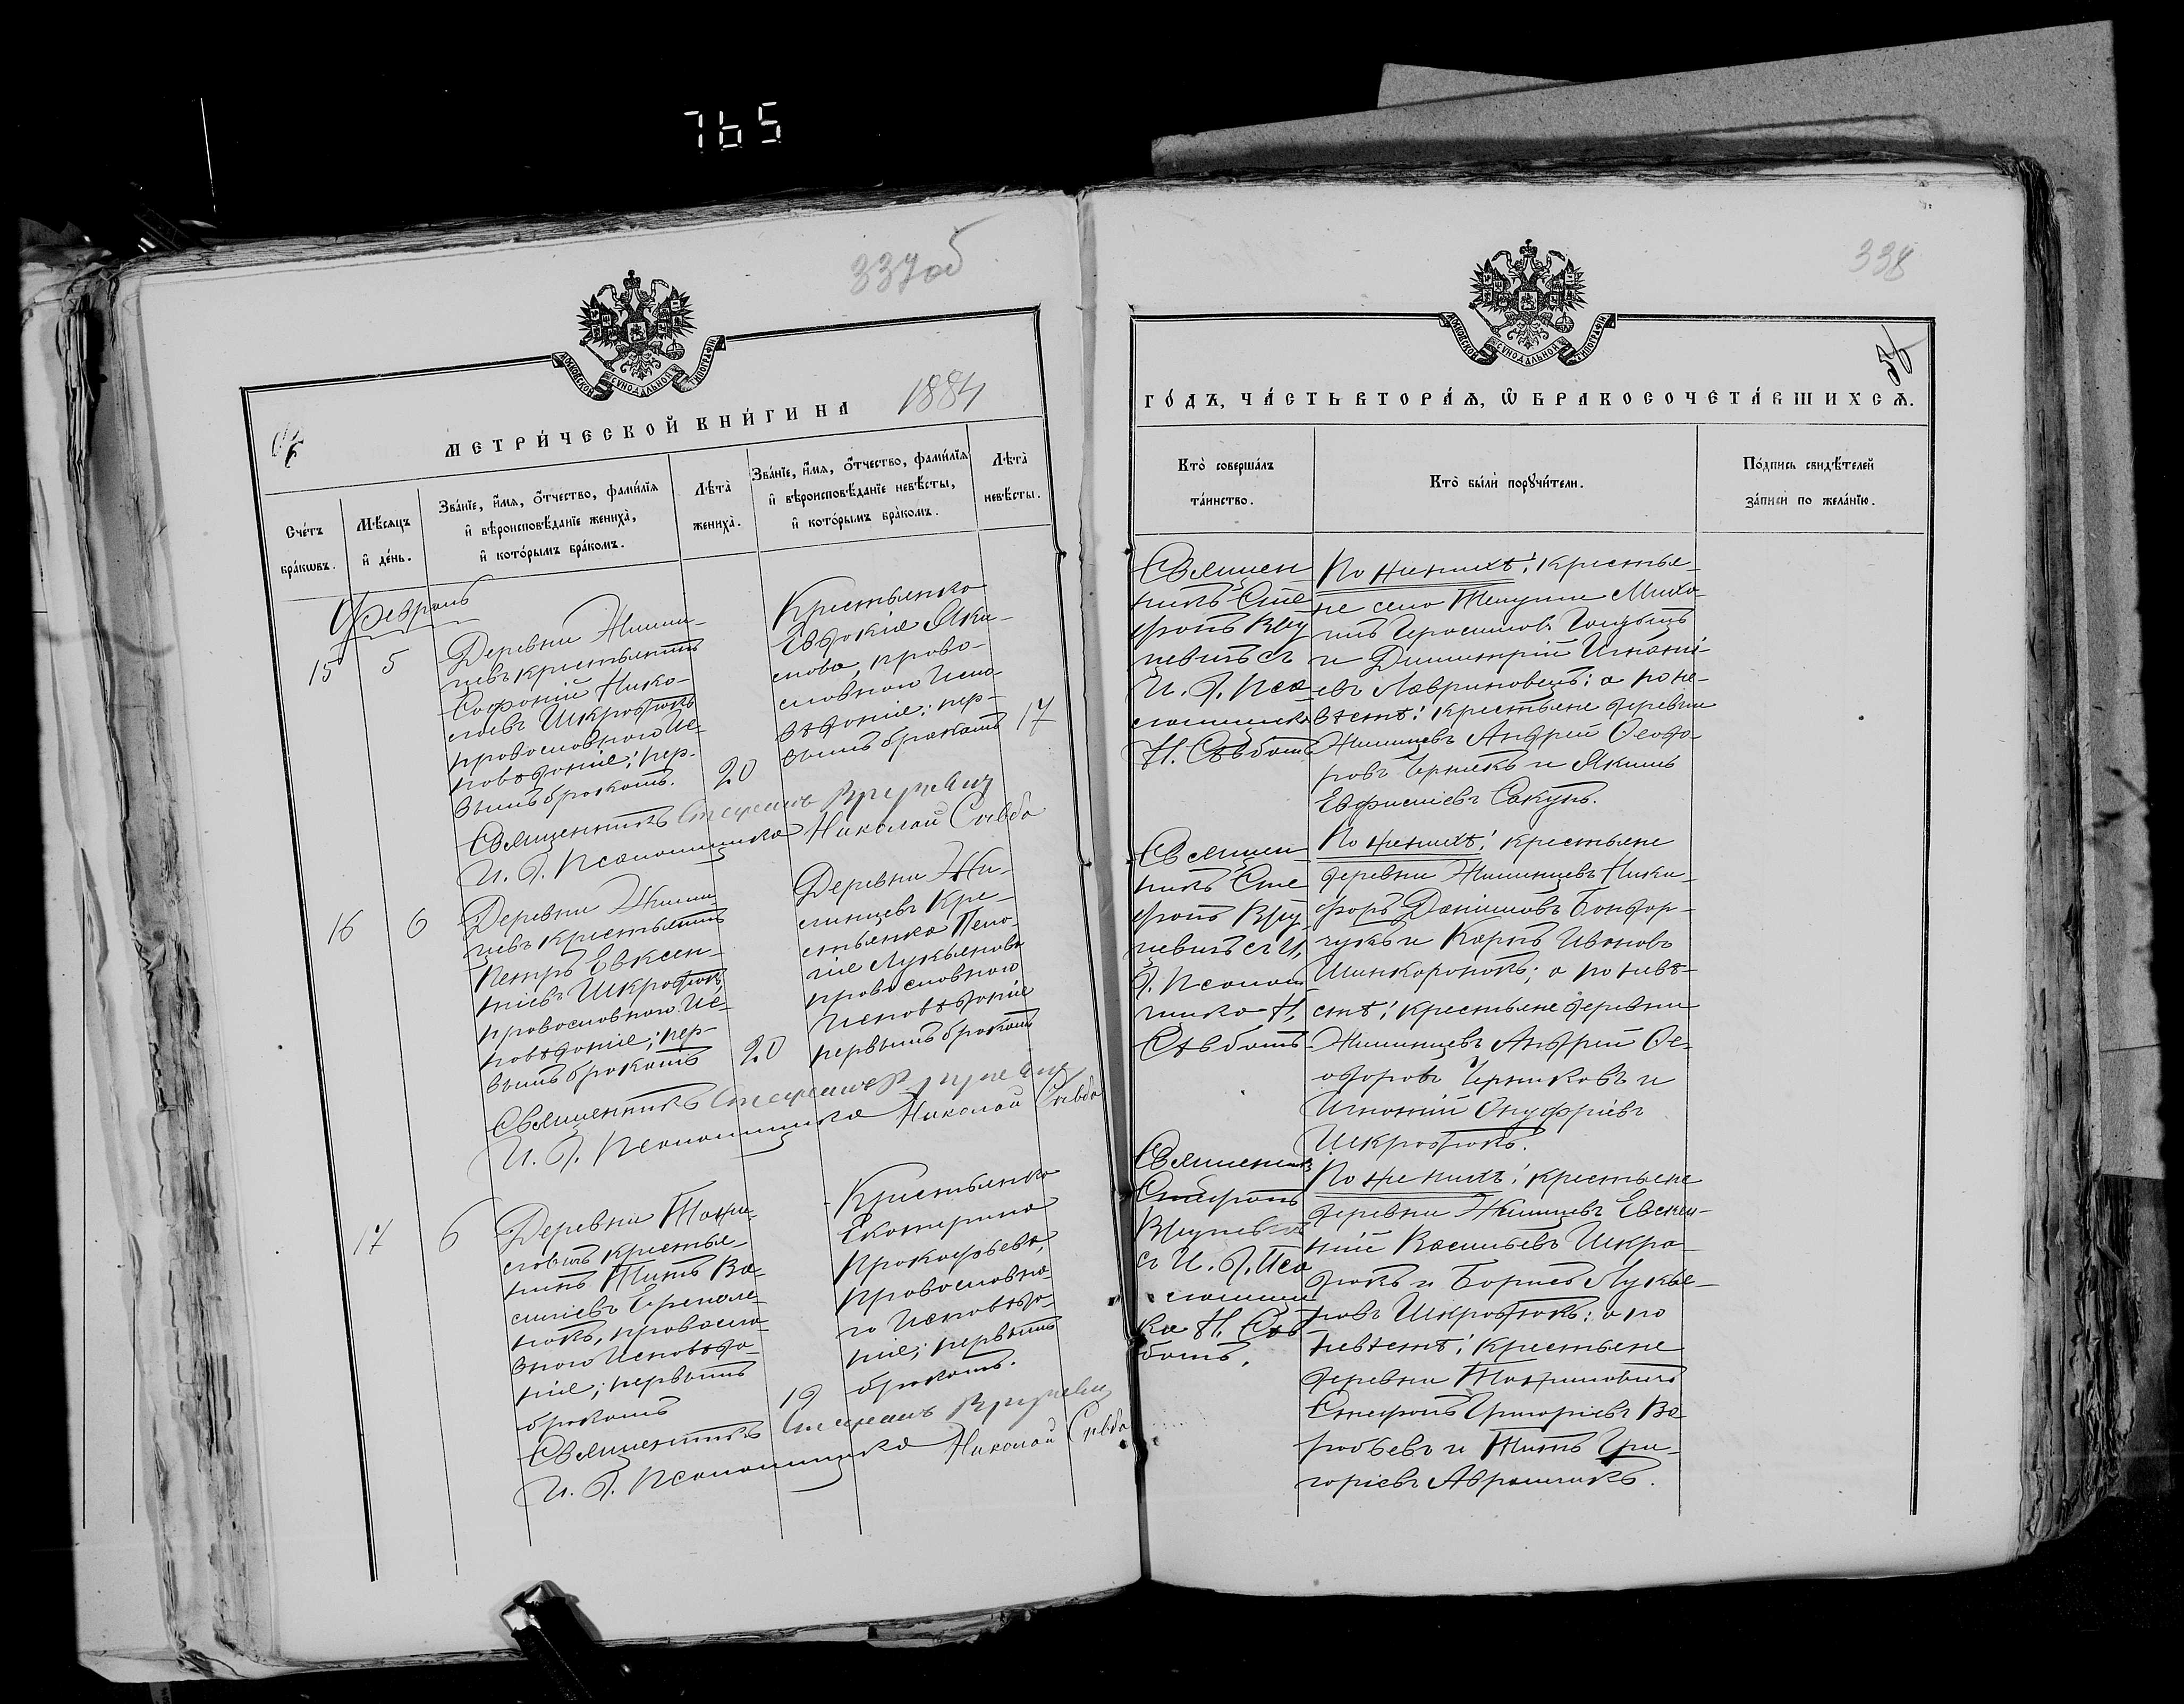 765
337об
МОСКОВСКОЙ СѴНОДАЛЬНОЙ ТИПОГРАФІИ
МЕТРИ́ЧЕСКОЙ КНИ́ГИ НА 1884
Сче́тъ бра́кѡвъ.
Мѣ́сяцъ и҆ де́нь.
Зва́нїе, и҆́мѧ, ѻ҆́тчество, фами́лїѧ
и҆ вѣроисповѣ́данїе жениха̀,
и҆ кото́рымъ бра́комъ.
Лѣта̀ жениха̀.
Зва́нїе, и҆́мѧ, ѻ҆́тчество, фами́лїѧ
и҆ вѣроисповѣ́данїе невѣ́сты,
и҆ кото́рымъ бра́комъ.
Лѣта̀ невѣ́сты.
Февраль
15 5
Деревни Жилин-
цевъ крестьянинъ
Софоній Нико-
лаевъ Шкродюкъ
православнаго Ис-
повѣданія; пер-
вымъ бракомъ.
20
Крестьянка
Евдокія Яки-
мова, право-
славнаго Испо-
вѣданія; пер-
вымъ бракомъ
17
Священникъ Стефанъ
И. Д. Псаломщика Николай
16 6
Деревни Жилин-
цевъ крестьянинъ
Петръ Евксен-
тіевъ Шкродюкъ,
православнаго Ис-
повѣданія; пер-
вымъ бракомъ
20
Деревни Жи-
линцевъ Кре-
стьянка Пела-
гія Лукьянова
православнаго
Исповѣданія
первымъ бракомъ
Священникъ Стефанъ
И. Д. Псаломщика Николай
17 6
Деревни
крестья-
нинъ Титъ Ва-
силіевъ
православ-
наго Исповѣда-
нія; первымъ
бракомъ
19
Крестьянка
Екатерина
Прокофьева,
православна-
го Исповѣда-
нія; первымъ
бракомъ.
Священникъ Стефанъ
И. Д. Псаломщика Николай
338
МОСКОВСКОЙ СѴНОДАЛЬНОЙ ТИПОГРАФІИ
ГО́ДЪ, ЧА́СТЬ ВТОРА́Ѧ, Ѡ҆ БРАКОСОЧЕТА́ВШИХСѦ.
Кто̀ соверша́лъ
та́инство.
Кто̀ бы́ли порꙋчи́тели.
По́дпись свидѣ́телей
за́писи по жела́нїю.
Священ-
никъ Сте
фанъ
съ
И. Д. Пса
ломщика
Н.
По женихѣ: крестья-
не села Михаи-
лъ Герасимовъ
и Димитрій Игнаті-
евъ Лавриновецъ; а по не-
вѣстѣ: крестьяне деревни
Жилинцевъ Андрей Ѳеодо-
ровъ и Якимъ
Евфиміевъ Сакунъ.
Священ
никъ Сте
фанъ
Д. Псалом
щика Н.
По женихѣ: крестьяне
деревни Жилинцевъ Ники-
форъ Даніиловъ Бондар-
чукъ и Карпъ Ивановъ
а по невѣ-
стѣ: крестьяне деревни
Жилинцевъ Андрей Ѳе-
одоровъ и
Игнатій Онуфріевъ
Шкродюкъ.
Священникъ
Стефанъ
съ И. Д. Пса
ломщи
ка Н.
По женихѣ: крестьяне
деревни Жилинцевъ Евксен-
тій Васильевъ Шкро-
дюкъ и Борисъ Лукья-
новъ Шкродюкъ; а по
невѣстѣ: крестьяне
деревни
Стефанъ Григоріевъ
и Титъ Гри-
горіевъ